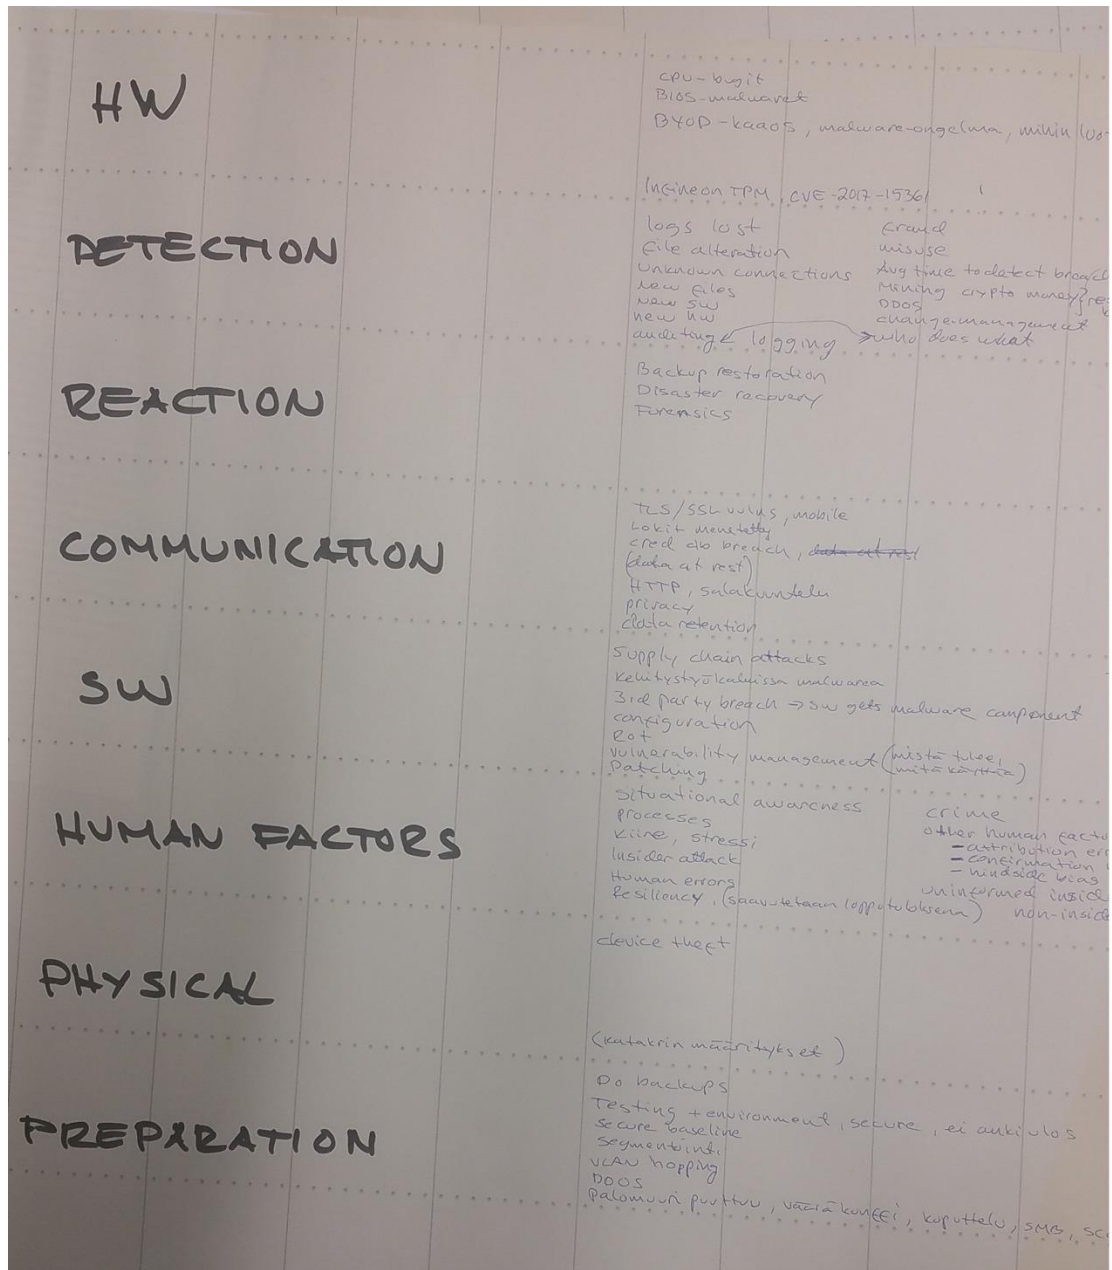 HW
CPU-bugit
BIOS-malwaret
BYOD-kaaos, malware-ongelma, mihin luo-
Infineon TPM, CVE-2017-15361
DETECTION
logs lost
file alteration
unknown connections
new files
new sw
new hw
auditing logging who does what
fraud
misuse
Avg time to detect breach
Mining crypto money } re
DDOS
change-management
REACTION
Backup restoration
Disaster recovery
Forensics
COMMUNICATION
TLS/SSL vulns, mobile
Lokit menetetty
cred db breach, data at rest
(data at rest)
HTTP, salakuuntelu
privacy
data retention
SW
Supply chain attacks
Kehitystyökaluissa malwarea
3rd party breach → sw gets malware component
configuration
RoT
vulnerability management (mistä tulee,
mitä käyttää)
Patching
HUMAN FACTORS
situational awareness
processes
kiire, stressi
Insider attack
Human errors
Resiliency, (saavutetaan lopputuloksena)
crime
other human facto
- attribution err
- confirmation
- hindside bias
uninformed inside
non-inside
PHYSICAL
device theft
(katakrin määritykset)
PREPARATION
Do backups
Testing + environment, secure, ei auki ulos
secure baseline
segmentointi
VLAN hopping
DOOS
Palomuuri puuttuu, väärä konffi, koputtelu, SMB, SC